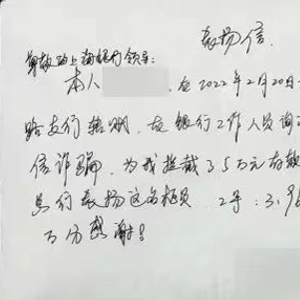 表扬信.
尊敬的上海银行领导:
本人 , 在2022年2月20日
路支行 , 在银行工作人员询
信诈骗, 为我拦截了5万元存款
贵行表扬这名柜员 . 工号: 3.9
万分感谢!